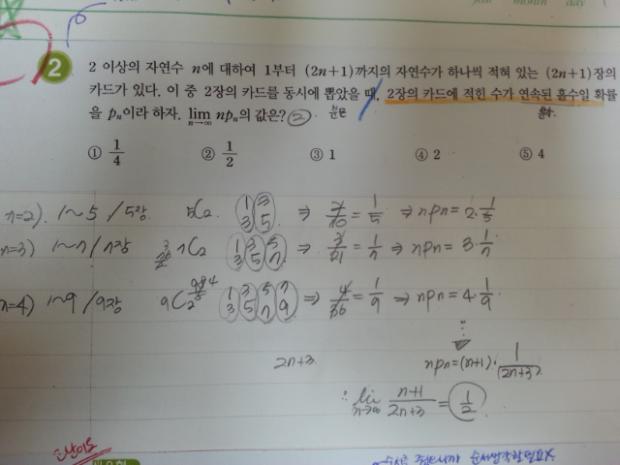 2 2 이상의 자연수 n에 대하여 1부터 (2n+1)까지의 자연수가 하나씩 적혀 있는 (2n+1)장의
카드가 있다. 이 중 2장의 카드를 동시에 뽑았을 때, 2장의 카드에 적힌 수가 연속된 홀수일 확률
을 pₙ이라 하자. lim n→∞ npₙ의 값은? ②
① 1/4 ② 1/2 ③ 1 ④ 2 ⑤ 4
n=2). 1~5 / 5장. 5C2. (1 3) (3 5) ⇒ 2/10 = 1/5 ⇒ npn = 2·1/5
n=3) 1~7 / 7장 7C2 (1 3) (3 5) (5 7) ⇒ 3/21 = 1/7 ⇒ npn = 3·1/7
n=4) 1~9 / 9장 9C2 (1 3) (3 5) (5 7) (7 9) ⇒ 4/36 = 1/9 ⇒ npn = 4·1/9
2n+3. npn = (n+1)·1/(2n+3)
∴ lim n→∞ n+1/2n+3 = 1/2